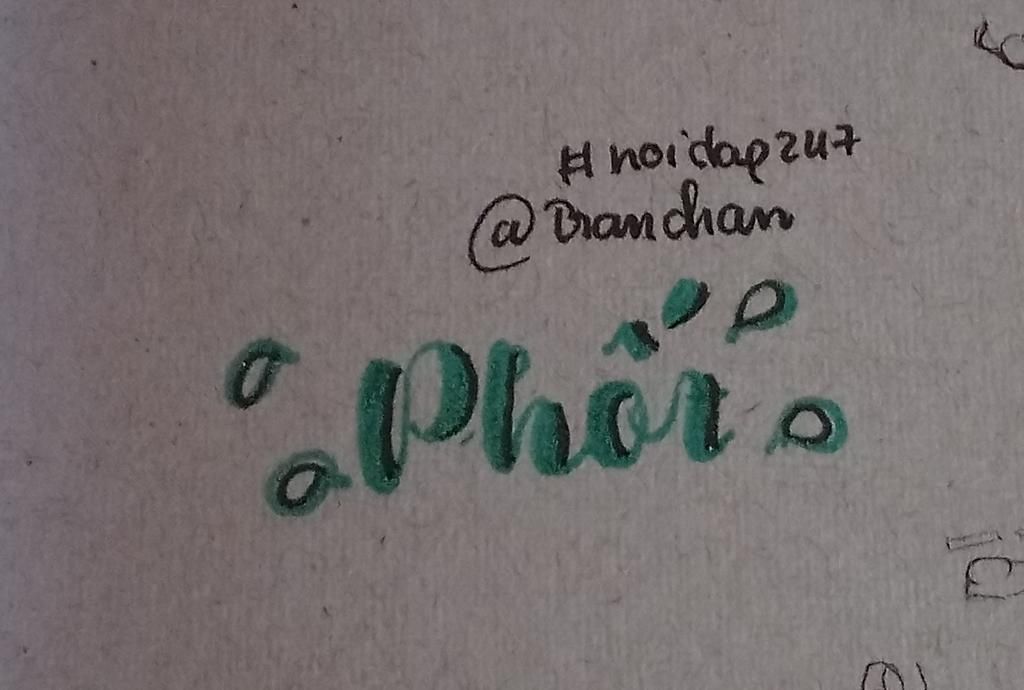 #noidap247
@Branchan
Phối